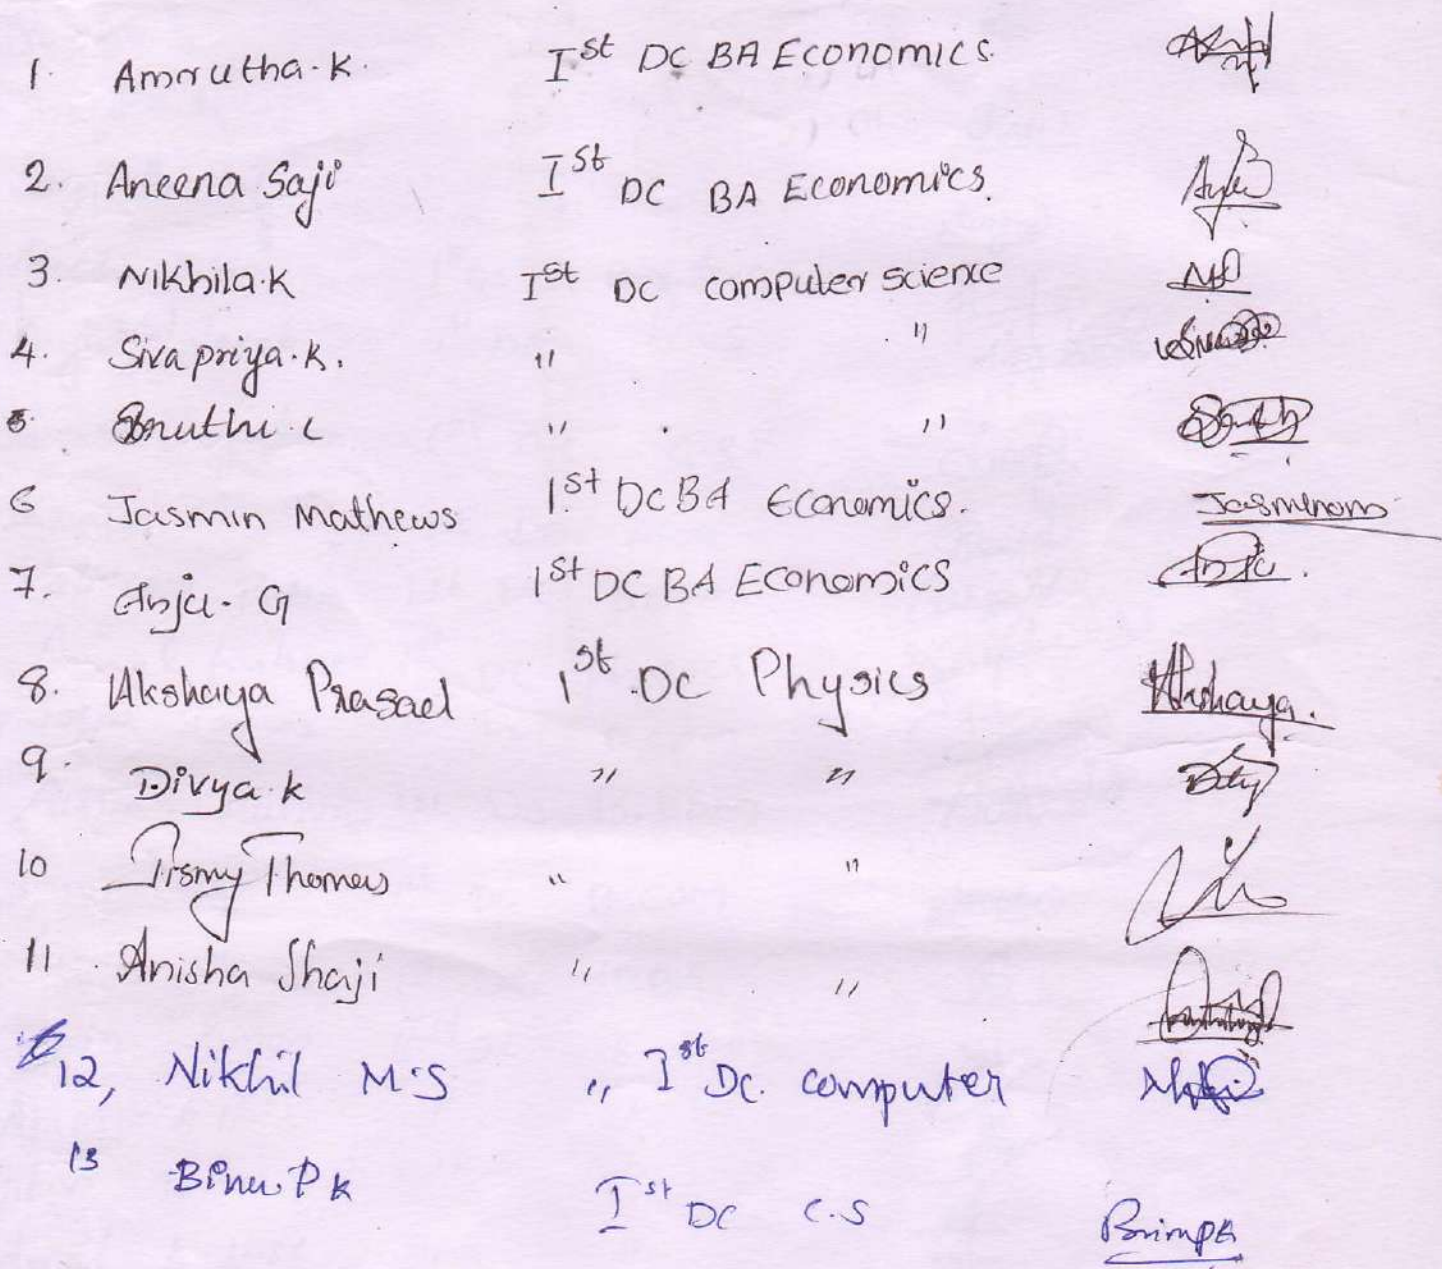 1. Amrutha.K. Ist DC BA Economics.
2. Aneena Saji Ist DC BA Economics.
3. Nikhila.K Ist DC computer science
4. Sivapriya.K. " "
5. Sruthi.C " "
6 Jasmin Mathews 1st DC BA Economics. Jasminom
7. Anju.G 1st DC BA Economics Anju.
8. Akshaya Prasad 1st DC Physics Akshaya.
9. Divya.K " "
10 Tismy Thomas " "
11. Anisha Shaji " "
12, Nikhil M.S " Ist DC. computer
13 Binu P K Ist DC C.S Binupk